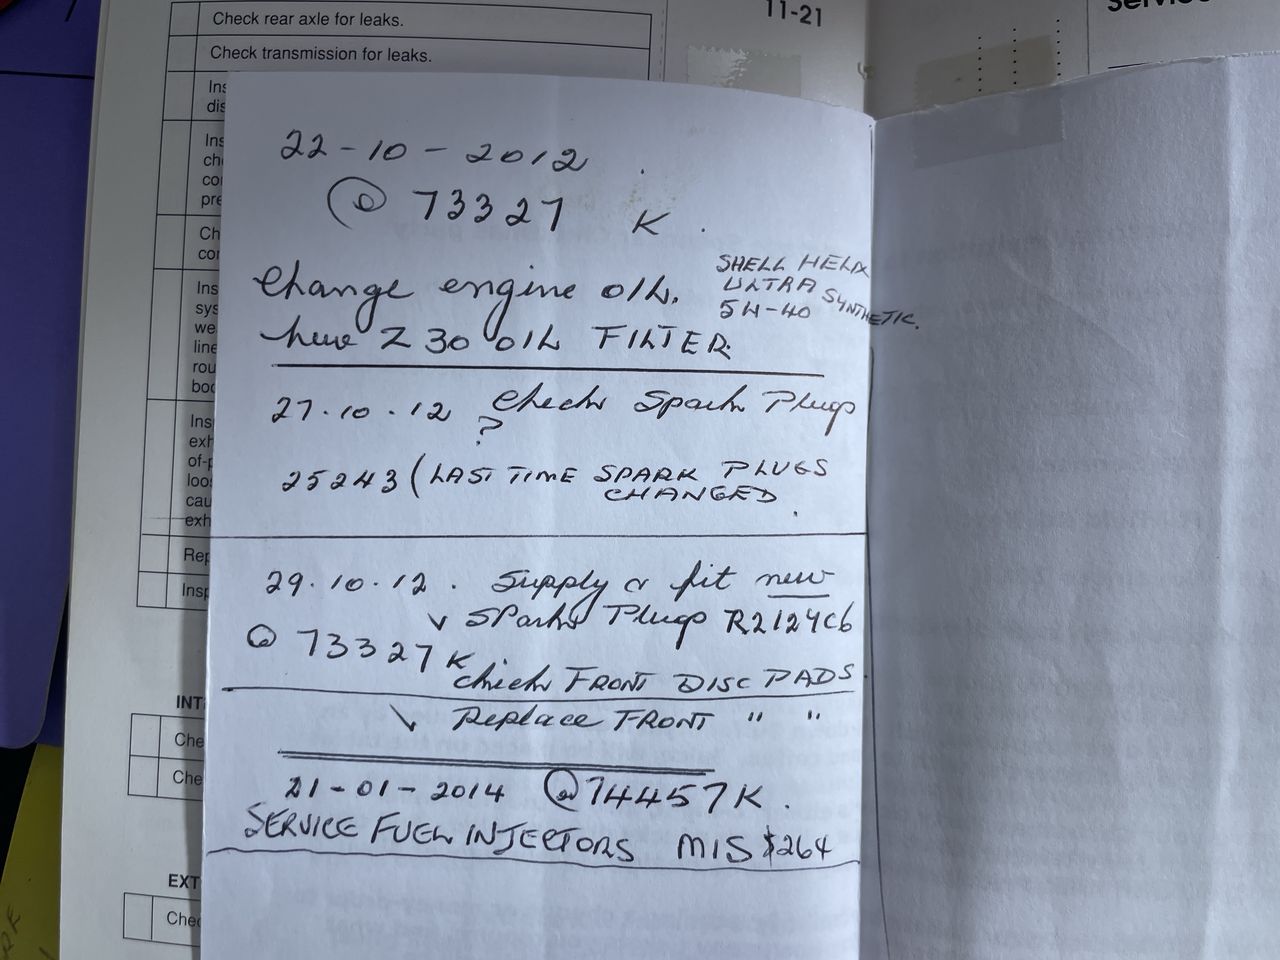 11-21
Check rear axle for leaks.
Check transmission for leaks.
Ins
dis
Ins
che
con
pre
Ch
con
Ins
sys
we
line
rou
boo
Ins
exh
of-p
loo
cau
exh
Rep
Insp
INT
Che
Che
EXT
Chec
22-10-2012
@ 73327 K.
Change engine oil. SHELL HELIX
ULTRA SYNTHETIC.
5W-40
new Z30 oil FILTER
27.10.12 Check Spark Plugs
?
25243 (LAST TIME SPARK PLUGS
CHANGED.
29.10.12. Supply & fit new
✓ Spark Plugs
@ 73327K
check FRONT DISC PADS.
✓ Replace FRONT " "
21-01-2014 @74457K.
SERVICE FUEL INJECTORS MIS $264